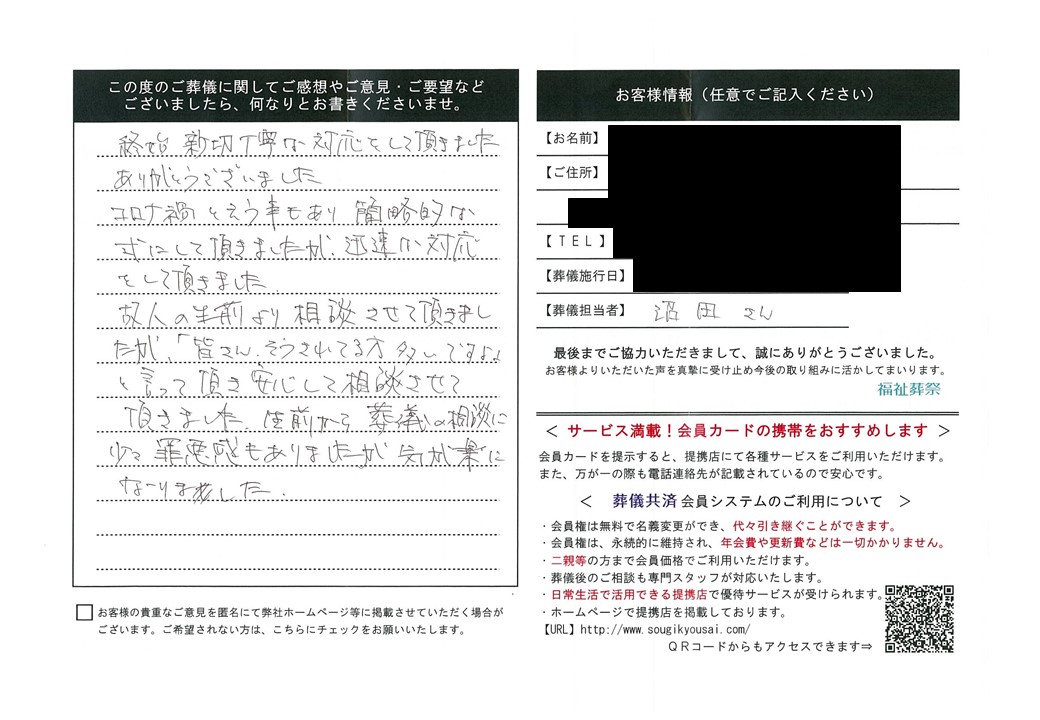 この度のご葬儀に関してご感想やご意見・ご要望など
ございましたら、何なりとお書きくださいませ。
終始 親切丁寧な対応をして頂きました
ありがとうございました
コロナ禍と云う事もあり 簡略的な
式にして頂きましたが、迅速な対応
をして頂きました
故人の生前より 相談させて頂きまし
たが、「皆さん、そうされてる方多いですよ」
と言って頂き 安心して相談させて
頂きました。生前から葬儀の相談に
少々罪悪感もありましたが 気が楽に
なりました。
お客様の貴重なご意見を匿名にて弊社ホームページ等に掲載させていただく場合が
ございます。ご希望されない方は、こちらにチェックをお願いいたします。
お客様情報（任意でご記入ください）
【お名前】
【ご住所】
【ＴＥＬ】
【葬儀施行日】
【葬儀担当者】 沼田 さん
最後までご協力いただきまして、誠にありがとうございました。
お客様よりいただいた声を真摯に受け止め今後の取り組みに活かしてまいります。
福祉葬祭
＜ サービス満載！会員カードの携帯をおすすめします ＞
会員カードを提示すると、提携店にて各種サービスをご利用いただけます。
また、万が一の際も電話連絡先が記載されているので安心です。
＜ 葬儀共済 会員システムのご利用について ＞
・会員権は無料で名義変更ができ、代々引き継ぐことができます。
・会員権は、永続的に維持され、年会費や更新費などは一切かかりません。
・二親等の方まで会員価格でご利用いただけます。
・葬儀後のご相談も専門スタッフが対応いたします。
・日常生活で活用できる提携店で優待サービスが受けられます。
・ホームページで提携店を掲載しております。
【URL】http://www.sougikyousai.com/
ＱＲコードからもアクセスできます⇒